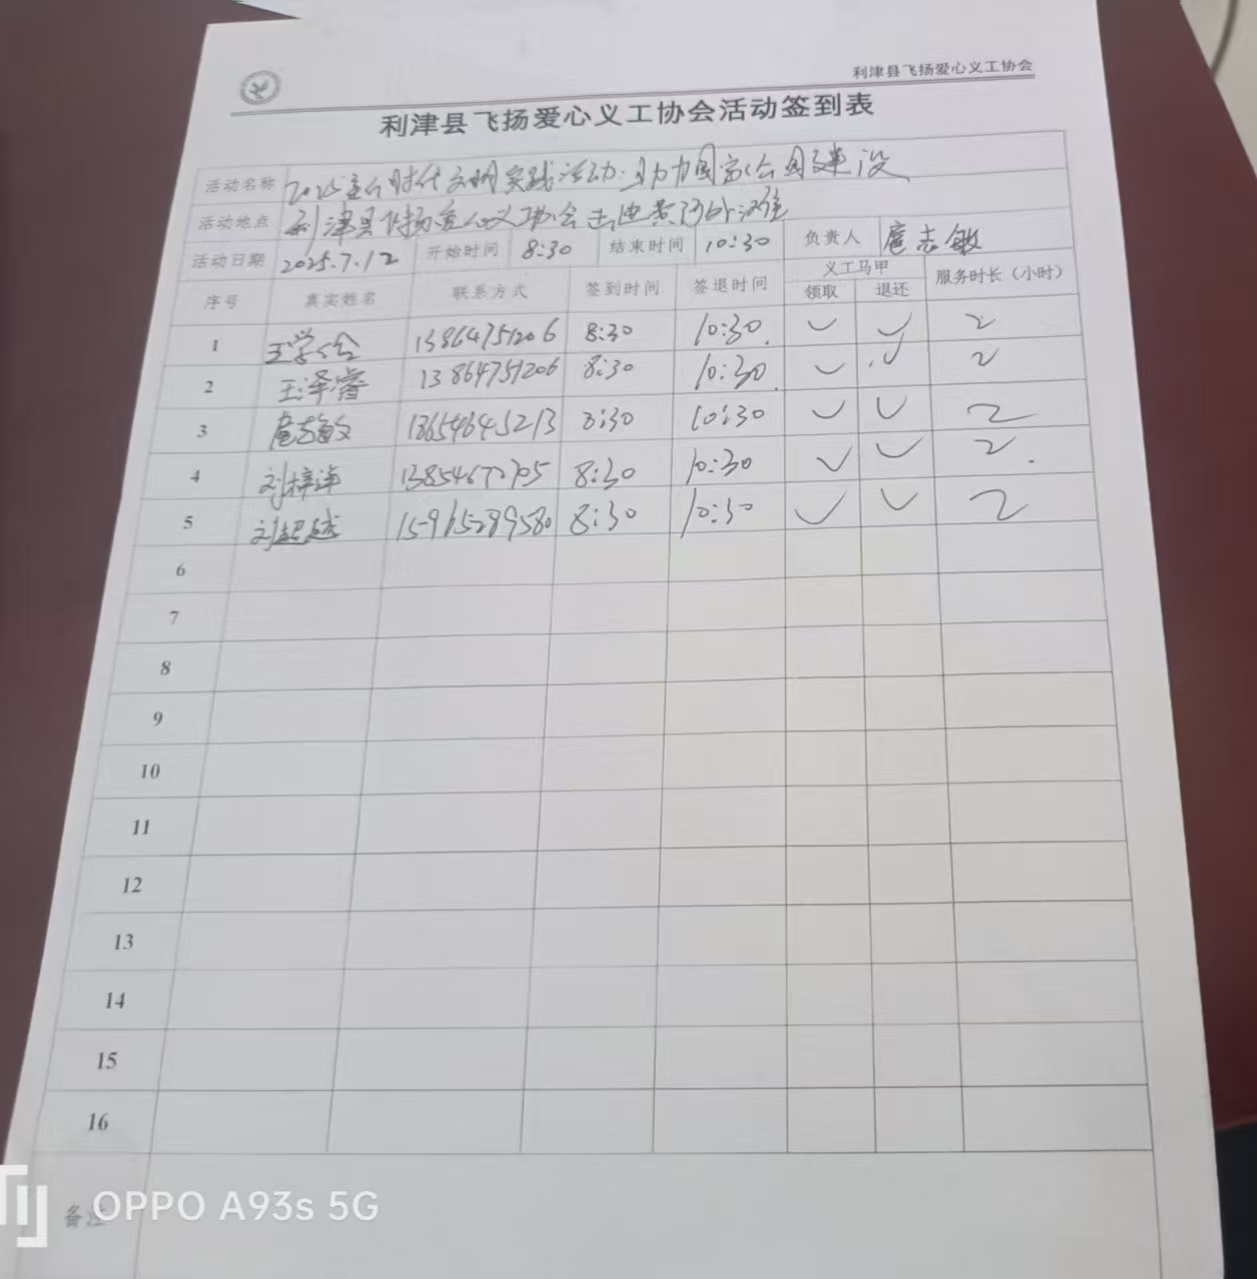 利津县飞扬爱心义工协会
利津县飞扬爱心义工协会活动签到表
活动名称 2025 时代文明实践活动·助力国家公园建设
活动地点 利津县飞扬爱心义工协会 黄河外滩
活动日期 2025.7.12 开始时间 8:30 结束时间 10:30 负责人 扈志敏
序号 真实姓名 联系方式 签到时间 签退时间 义工马甲 服务时长（小时）
领取 退还
1 王学 13864751206 8:30 10:30 ✓ ✓ 2
2 王泽睿 13864751206 8:30 10:30 ✓ ✓ 2
3 扈志敏 13654645213 8:30 10:30 ✓ ✓ 2
4 刘梓洋 8:30 10:30 ✓ ✓ 2
5 刘超越 15965289580 8:30 10:30 ✓ ✓ 2
6
7
8
9
10
11
12
13
14
15
16
备注
OPPO A93s 5G